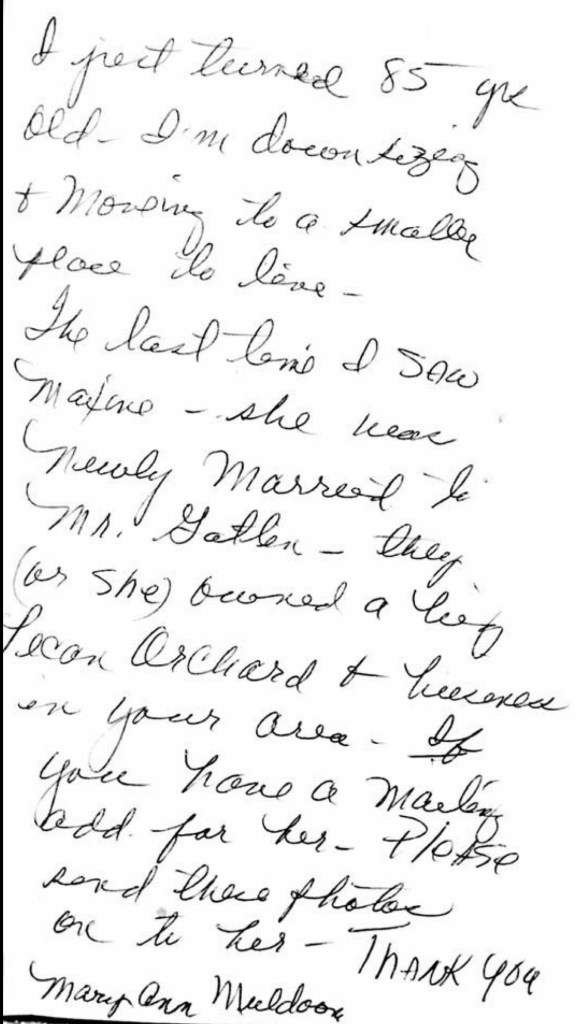 I just turned 85 yrs
old - I'm downsizing
+ Moving to a smaller
place to live -
The last time I SAW
Maxine - she was
Newly Married to
Mr. Gatlen - they
(or she) owned a big
Pecan Orchard + business
in your area - If
you have a mailing
add. for her - Please
send these photos
on to her - THANK YOU
Mary Ann Muldoon